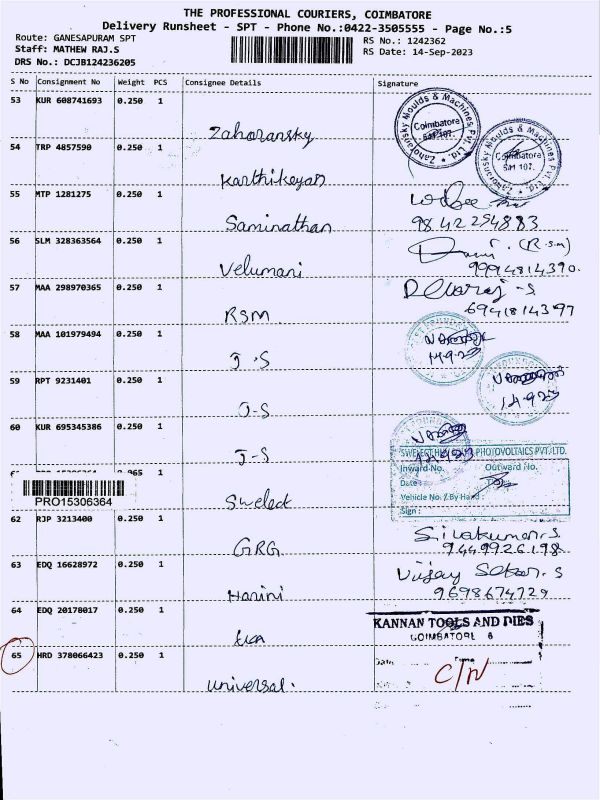 THE PROFESSIONAL COURIERS, COIMBATORE
Delivery Runsheet - SPT - Phone No.:0422-3505555 - Page No.:5
Route: GANESAPURAM SPT
Staff: MATHEW RAJ.S
DRS No.: DCJB124236205
RS No.: 1242362
RS Date: 14-Sep-2023
S No Consignment No Weight PCS Consignee Details Signature
53 KUR 608741693 0.250 1
Zahoransky
Zahoransky Moulds & Machines Pvt. Ltd.
Coimbatore
641 107.
54 TRP 4857590 0.250 1
Karthikeyan
Zahoransky Moulds & Machines Pvt. Ltd.
Coimbatore
641 107.
55 MTP 1281275 0.250 1
Saminathan
9842254883
56 SLM 328363564 0.250 1
Velumani
(R.S.M)
9994814390.
57 MAA 298970365 0.250 1
RSM
Devaraj - S
6941814397
58 MAA 101979494 0.250 1
J.S
14-9-23
59 RPT 9231401 0.250 1
J-S
14-9-23
60 KUR 695345386 0.250 1
J-S
PHOTOVOLTAICS PVT. LTD.
Inward No. Outward No.
Date :
Vehicle No. / By Hand :
Sign :
PRO15306364
Swelect
62 RJP 3213400 0.250 1
GRG
Sivakumar.S.
9449926198
63 EDQ 16628972 0.250 1
Harini
Vijay Sekar.S
9698674729
64 EDQ 20178017 0.250 1
KANNAN TOOLS AND DIES
COIMBATORE 6
65 HRD 378066423 0.250 1
universal.
Date Time
C/N